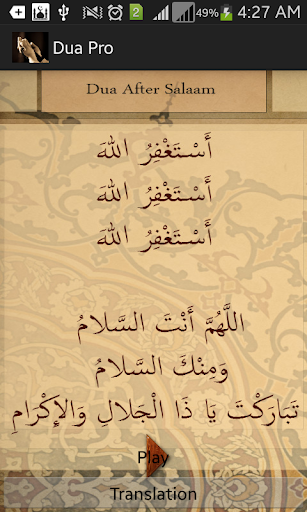 49% 4:27 AM
Dua Pro
Dua After Salaam
أَسْتَغْفِرُ اللهَ
أَسْتَغْفِرُ اللهَ
أَسْتَغْفِرُ اللهَ
اللَّهُمَّ أَنْتَ السَّلَامُ
وَمِنْكَ السَّلَامُ
تَبَارَكْتَ يَا ذَا الْجَلَالِ وَالإِكْرَامِ
Play
Translation